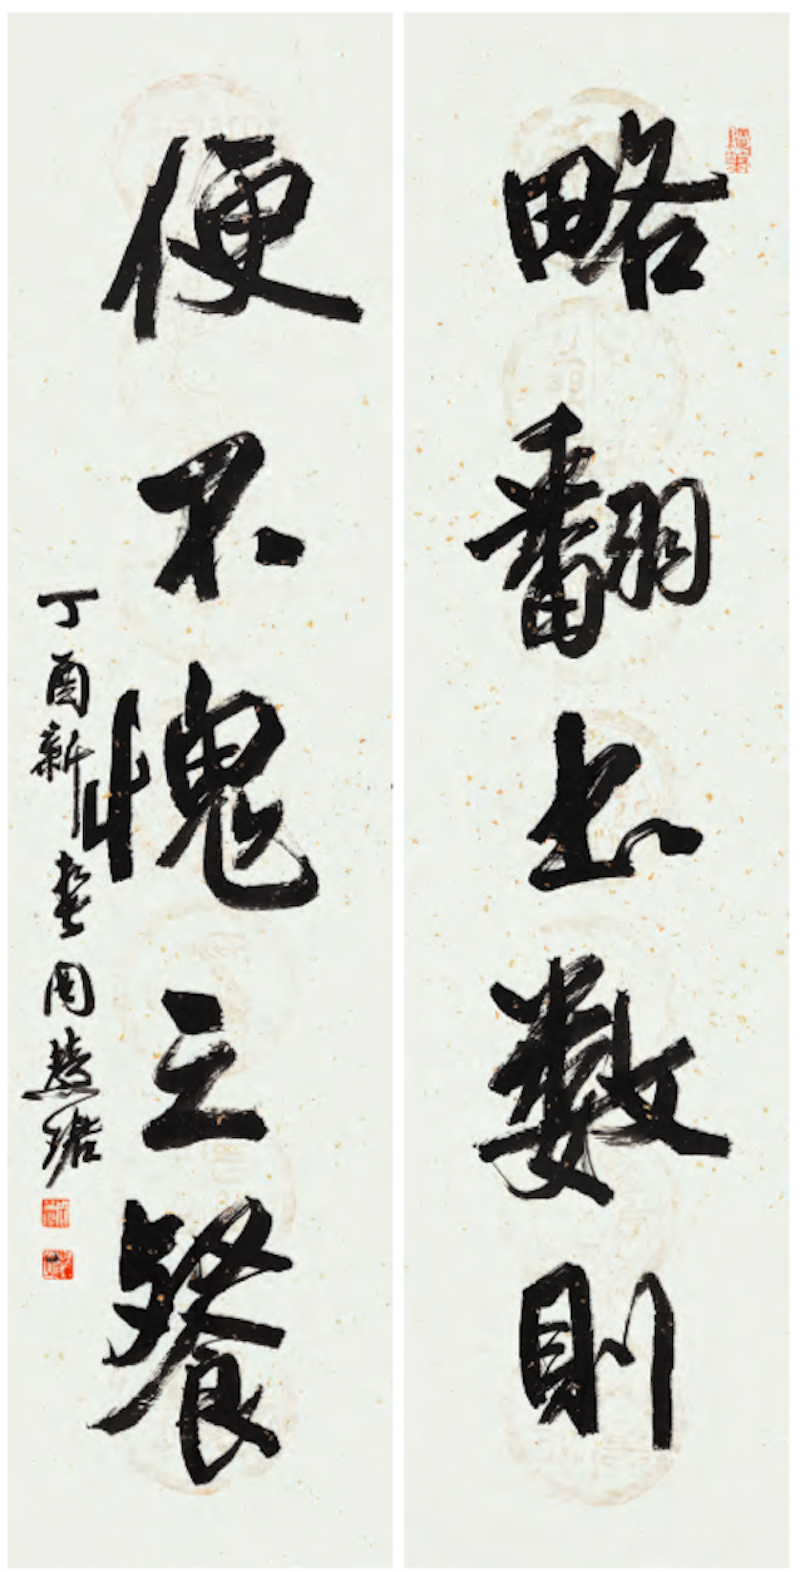 略翻书数則
便不愧三餐
丁酉新春周慧珺